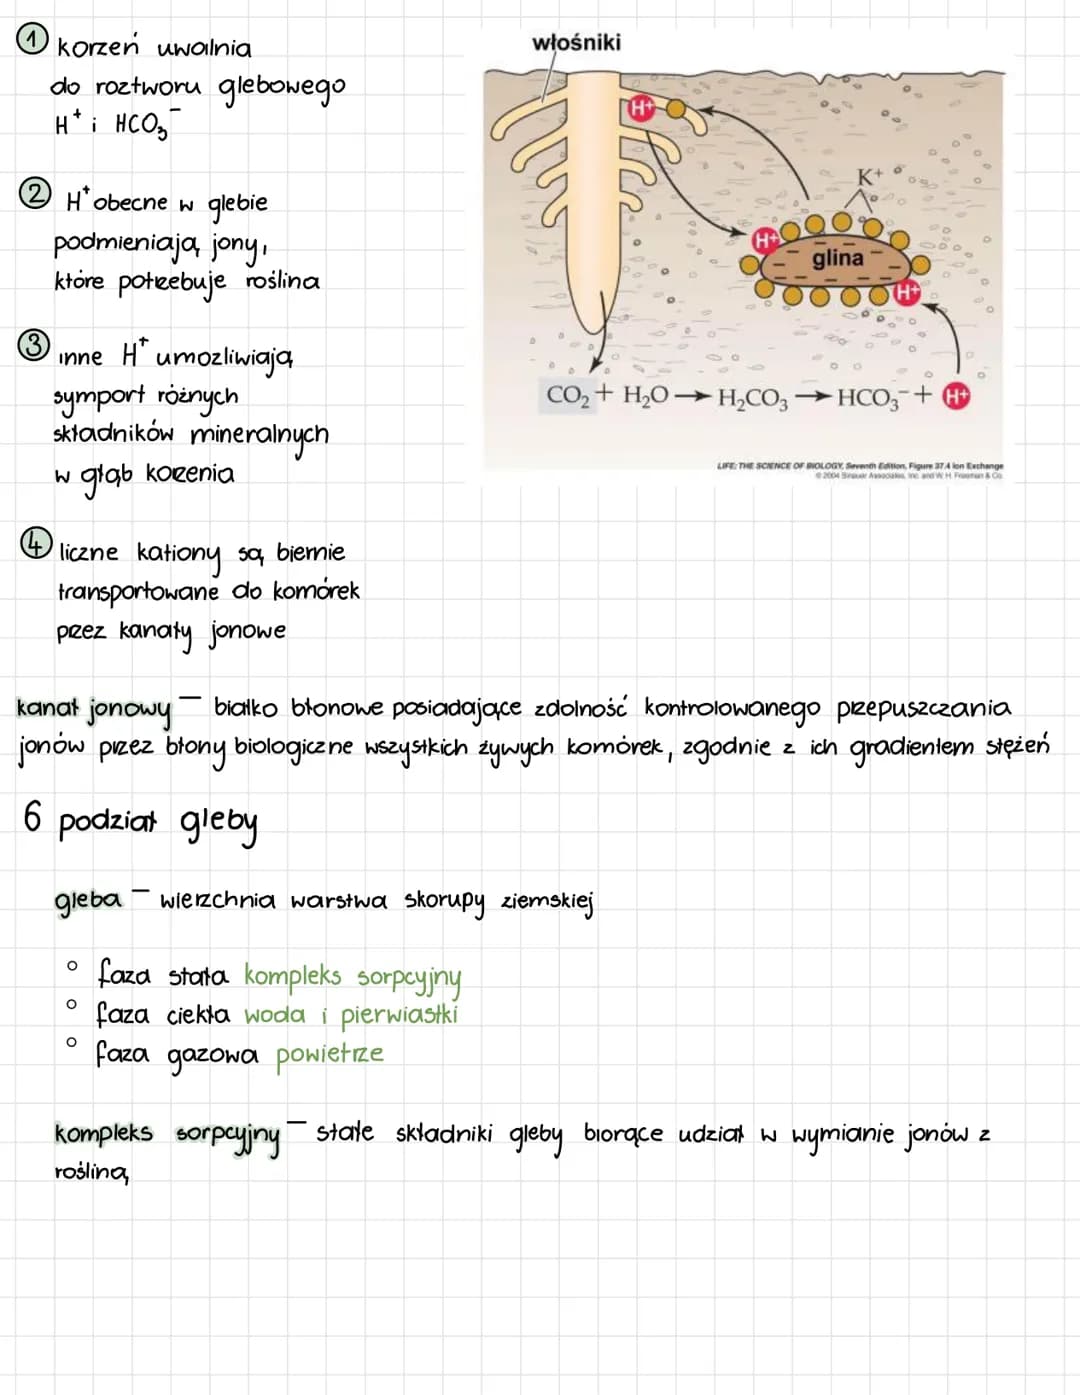 1 korzeń uwalnia
do roztworu glebowego
H⁺ i HCO₃⁻
2 H⁺ obecne w glebie
podmieniają jony,
które potrzebuje roślina
3 inne H⁺ umożliwiają
symport różnych
składników mineralnych
w głąb korzenia
4 liczne kationy są biernie
transportowane do komórek
przez kanały jonowe
włośniki
H+
K+
H+
glina
H+
CO₂ + H₂O → H₂CO₃ → HCO₃⁻ + H+
LIFE: THE SCIENCE OF BIOLOGY, Seventh Edition, Figure 37.4 Ion Exchange
© 2004 Sinauer Associates, Inc. and W. H. Freeman & Co.
kanał jonowy – białko błonowe posiadające zdolność kontrolowanego przepuszczania
jonów przez błony biologiczne wszystkich żywych komórek, zgodnie z ich gradientem stężeń
6 podział gleby
gleba – wierzchnia warstwa skorupy ziemskiej
° faza stała kompleks sorpcyjny
° faza ciekła woda i pierwiastki
° faza gazowa powietrze
kompleks sorpcyjny – stałe składniki gleby biorące udział w wymianie jonów z
rośliną